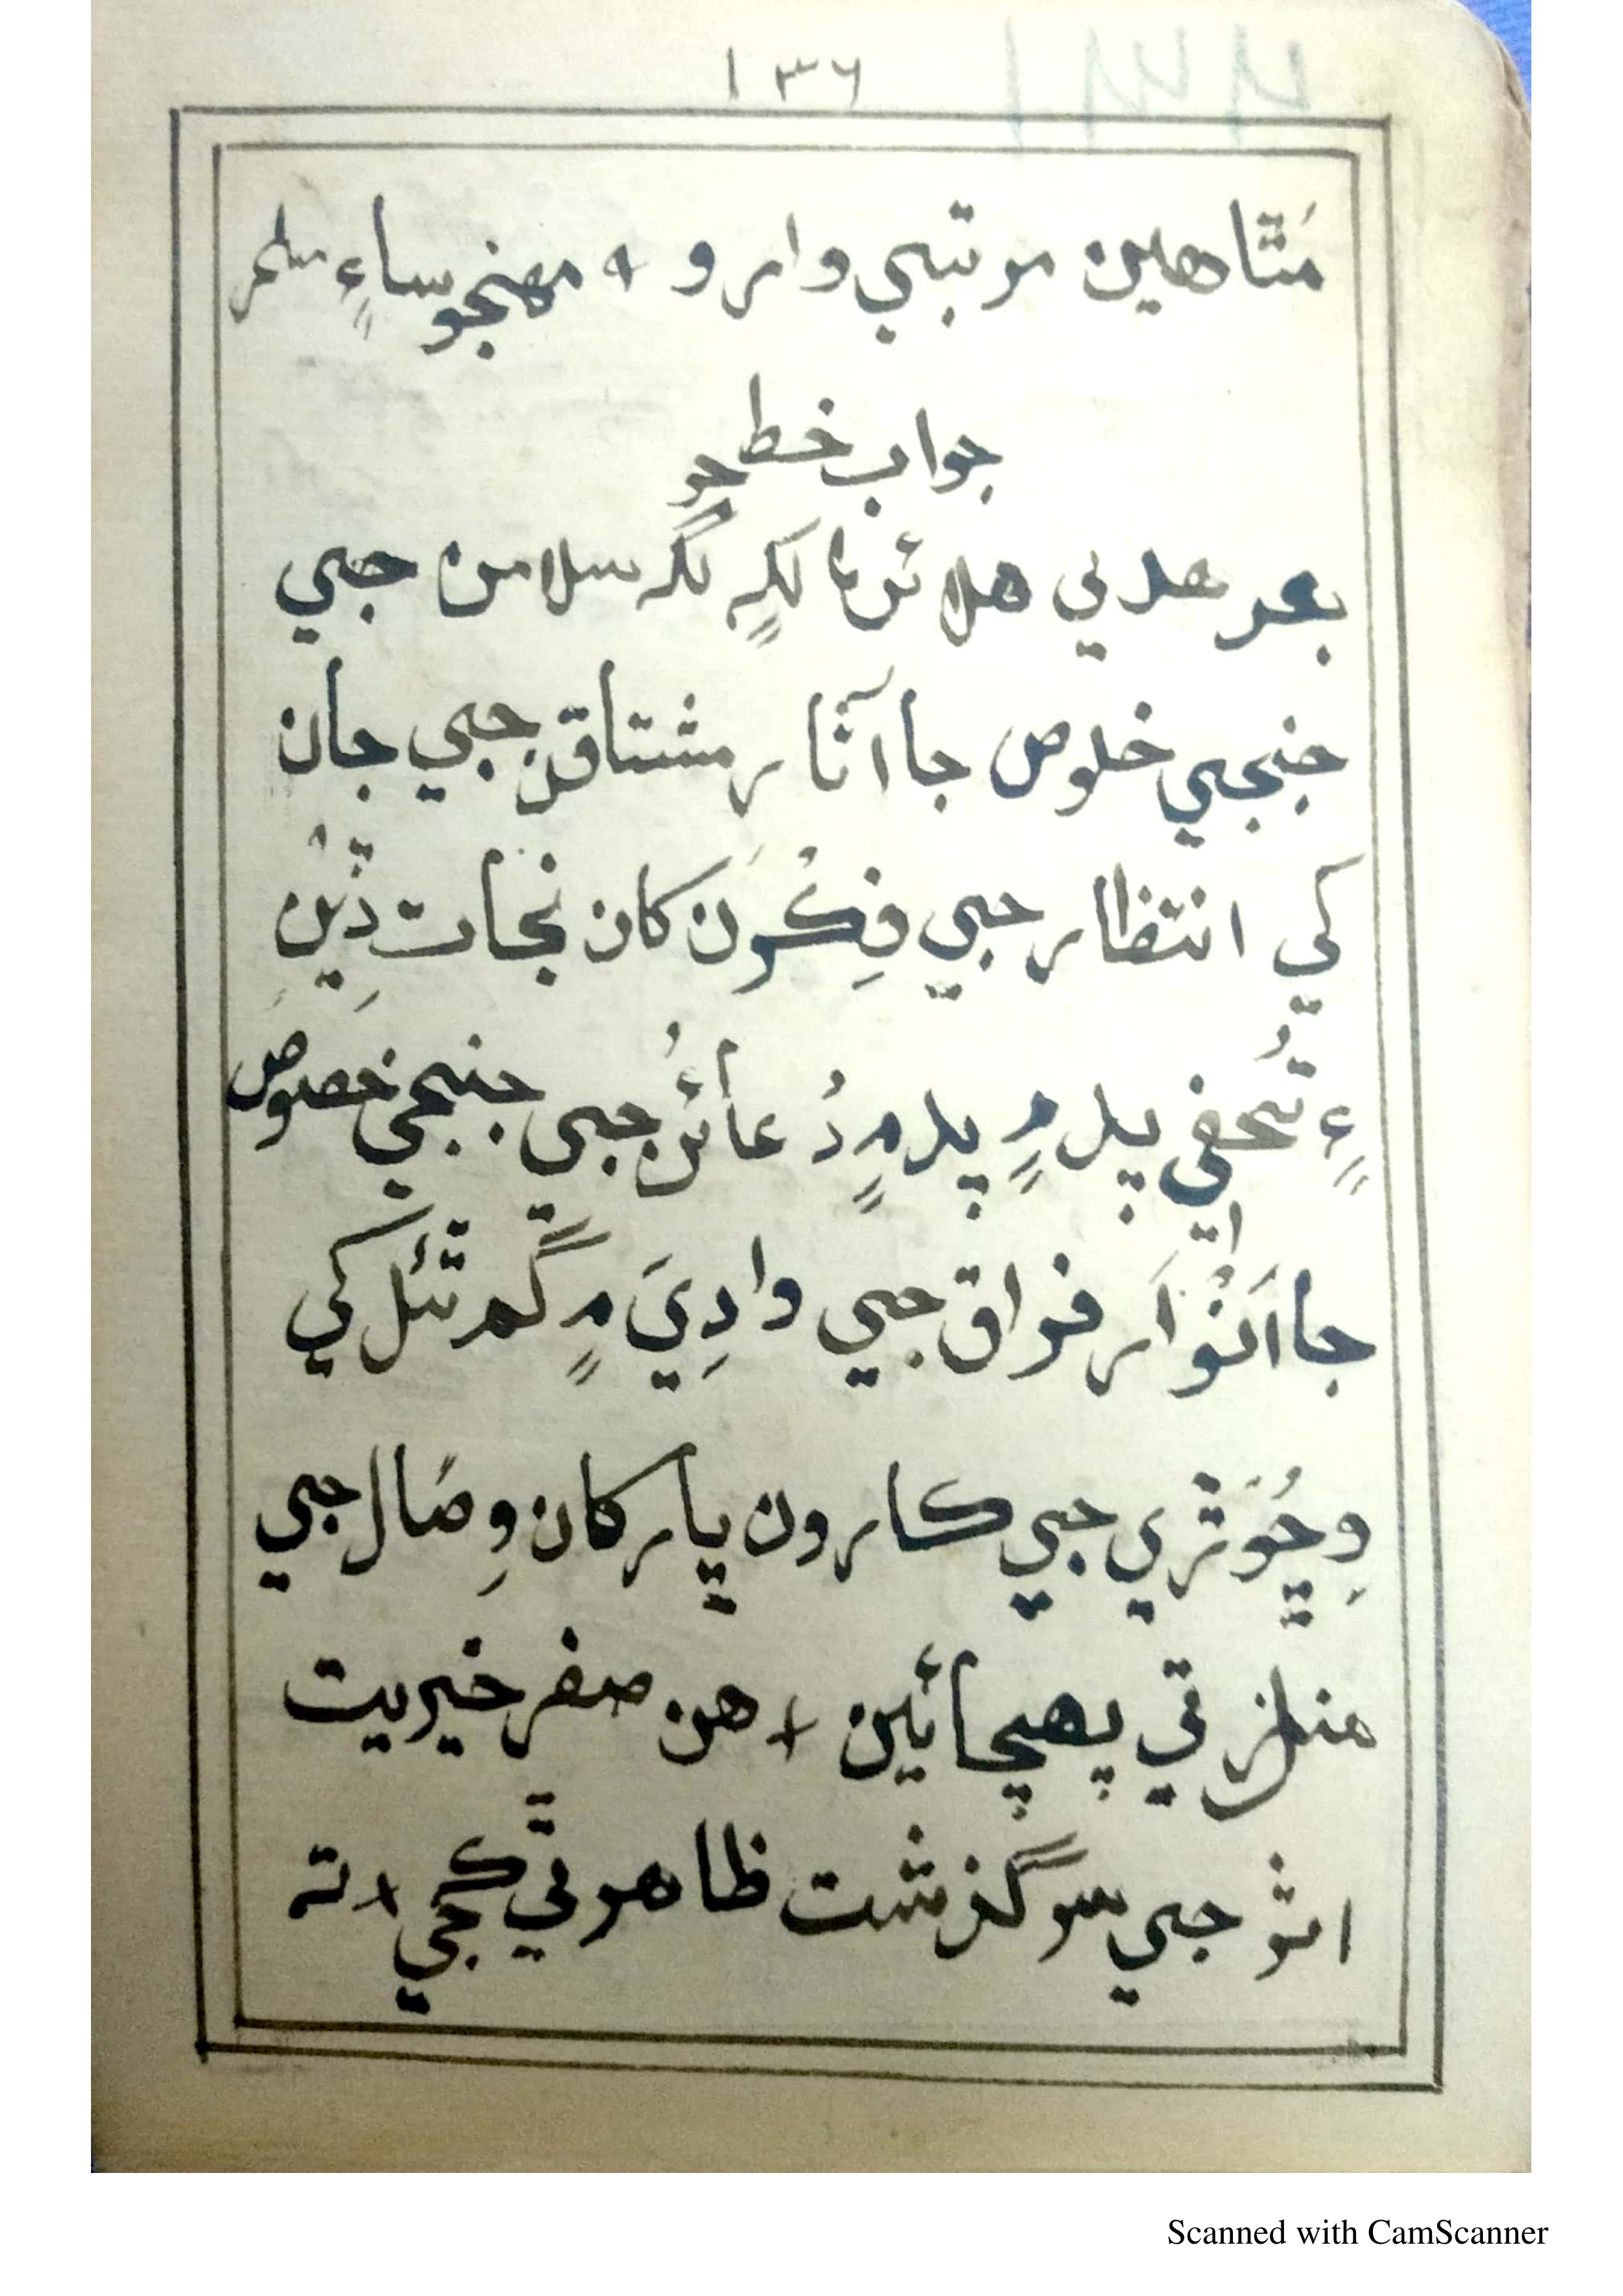 ١٣٦
مَٿاهين مرتبي وارو + مهنجو ساءِ سلم
جواب خط جو
بعد هدي هلائن ۾ لکہِ لکہ سلامن جي
جنجي خلوص جا آثار مشتاقن جي جان
کي انتظار جي فِڪرن کان نجات ڏِيَن
۽ تُحفي پل ۾ پل ۾ دُعائن جي جنجي خصوص
جا اَنوار فراق جي وادِيَ ۾ گم ٿئل کي
وِڇوَڙي جي ڪارون پار کان وِصَال جي
منزل تي پهچائين + هن صفر خيريت
اثر جي سرگذشت ظاهر ٿي ڪجي + تہ
Scanned with CamScanner